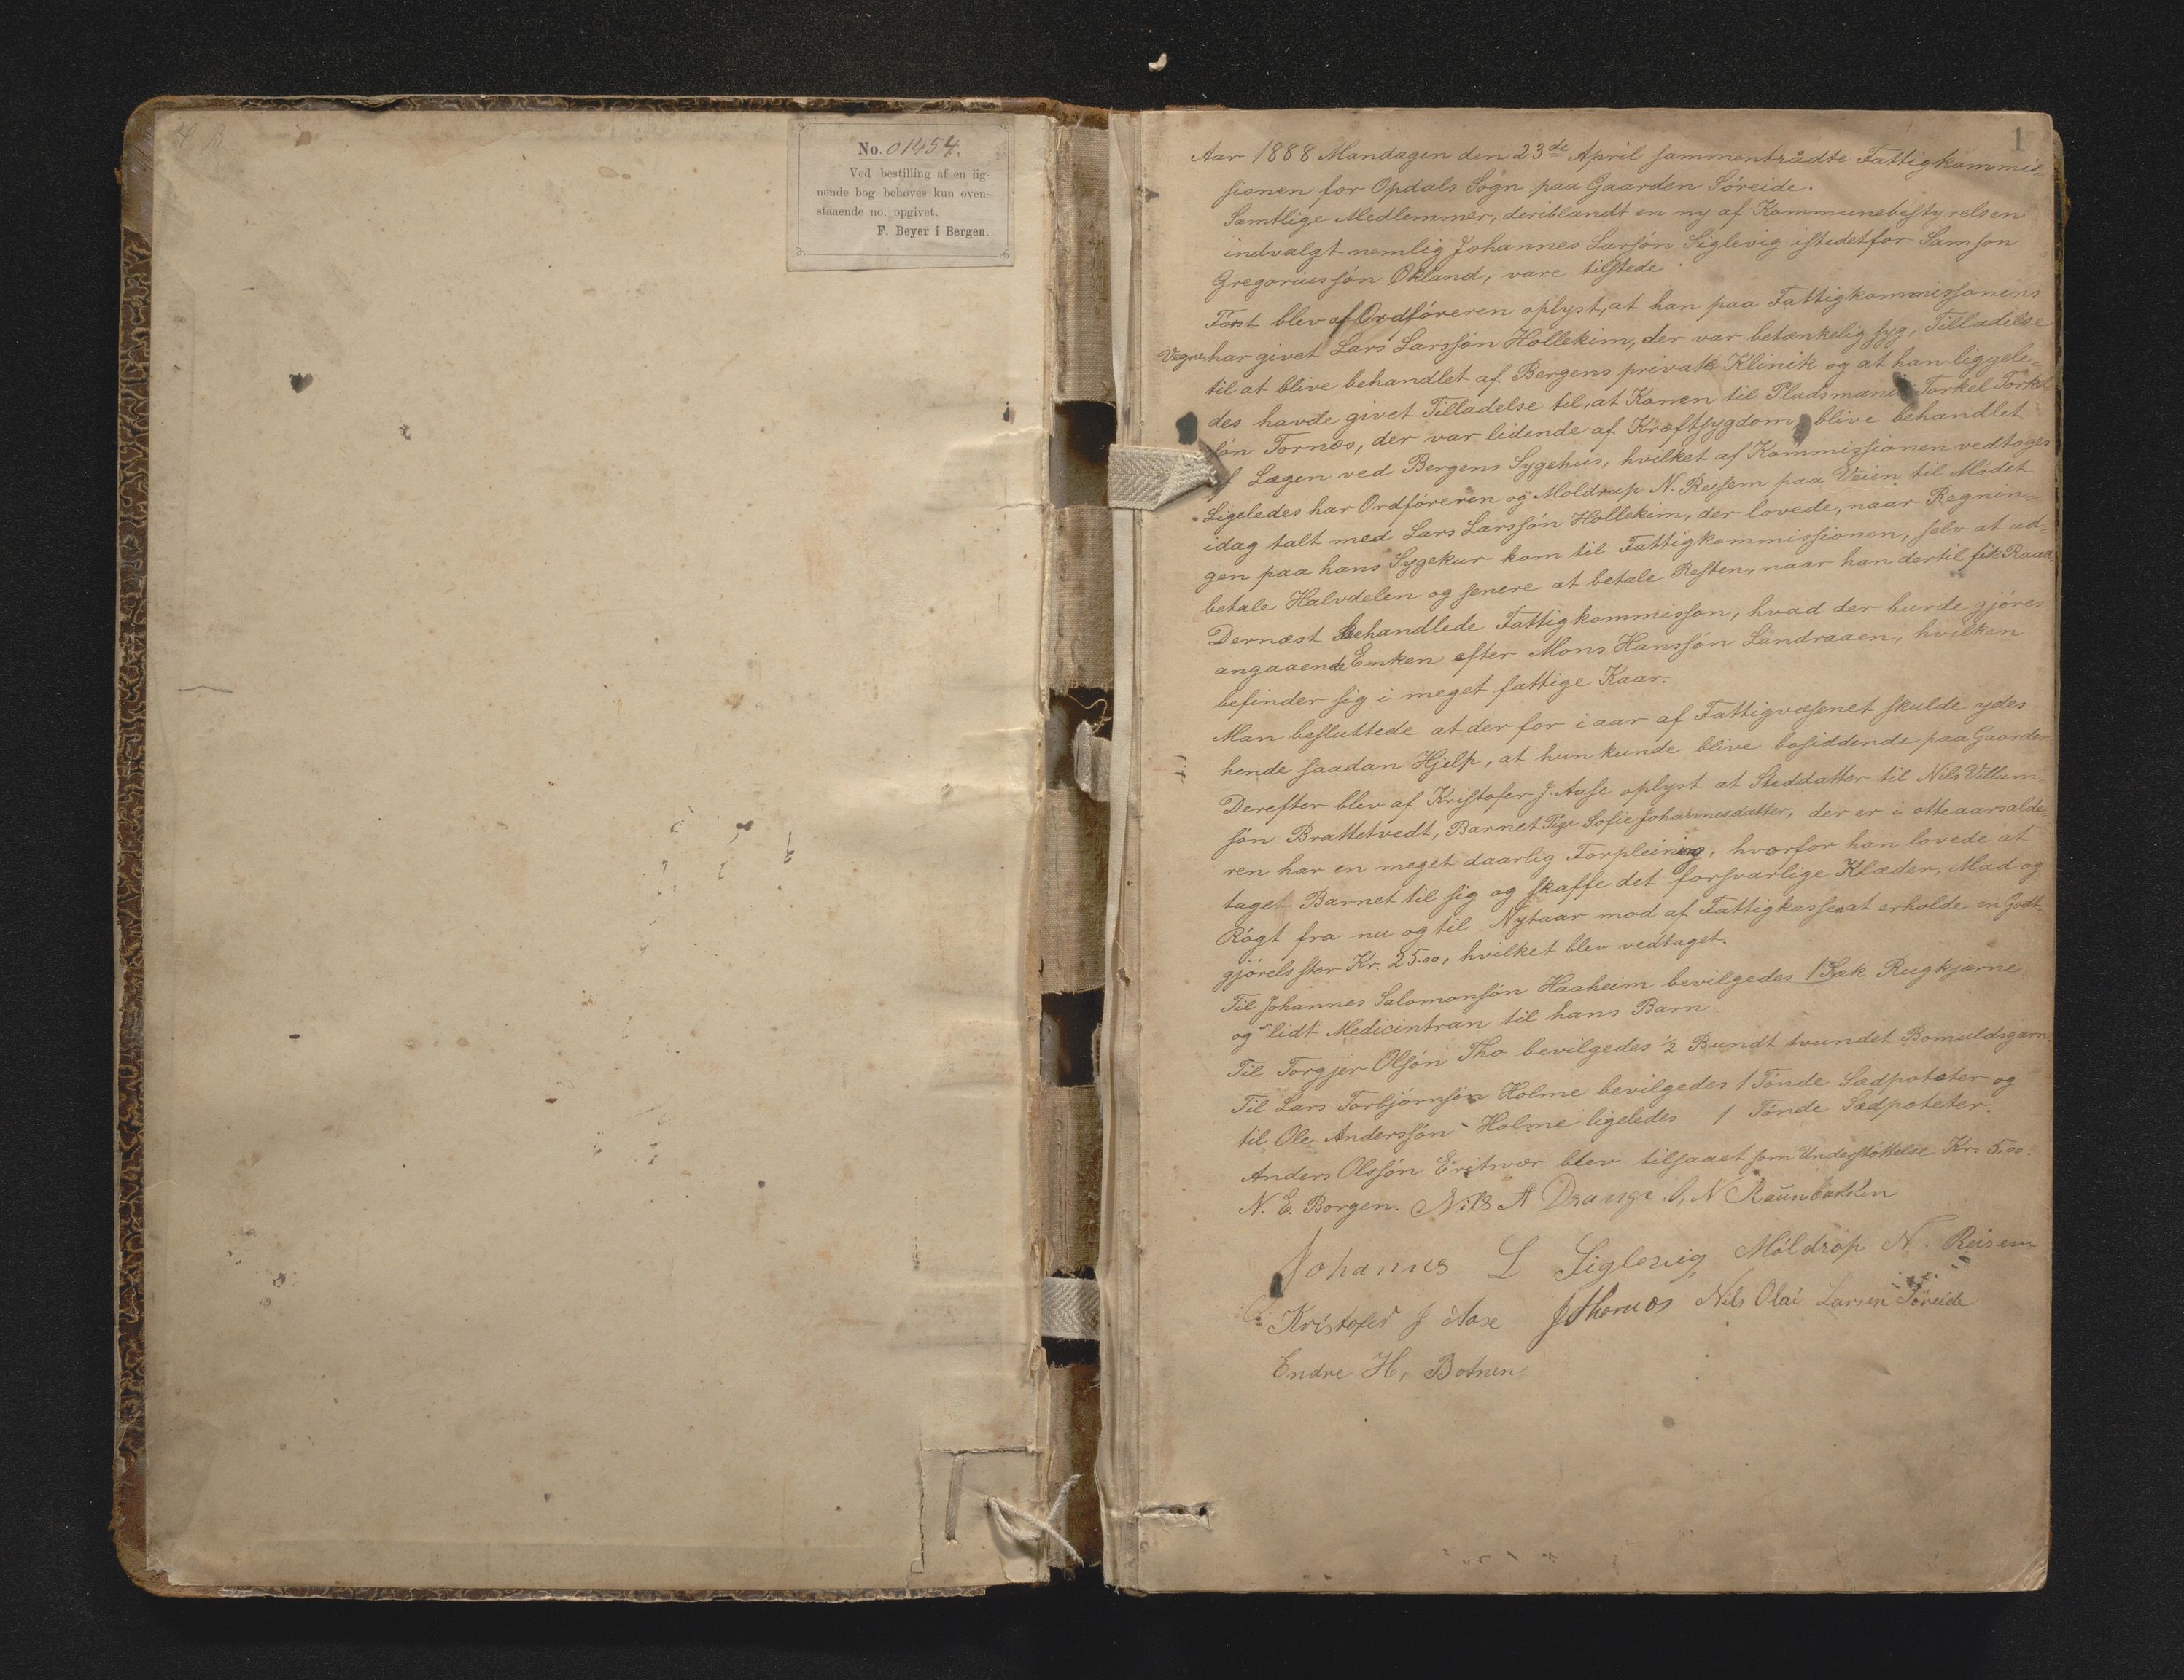 4 B.
No. 01454.
Ved bestilling af en lig-
nende bog behøves kun oven-
staaende no. opgivet.
F. Beyer i Bergen.
1
Aar 1888 Mandagen den 23de April sammentrådte Fattigkommis
sionen for Opdals Sogn paa Gaarden Söreide.
Samtlige Medlemmer, deriblandt en ny af Kommunebestyrelsen
indvalgt nemlig Johannes Larsön Siglevig istedetfor Samson
Gregoriussön Økland, vare tilstede.
Först blev af Ordföreren oplyst, at han paa Fattigkommissonens
Vegne har givet Lars Larssön Hollekim, der var betænkelig syg, Tilladelse
til at blive behandlet af Bergens private Klinik og at han liggele-
des havde givet Tilladelse til, at Konen til Pladsmand Torkel Torkel
sön Tornæs, der var lidende af Kræftsygdom, blive behandlet
af Lægen ved Bergens Sygehus, hvilket af Kommissionen vedtoges
Ligeledes har Ordföreren og Moldrup N. Reisem paa Veien til Mödet
idag talt med Lars Larssön Hollekim, der lovede, naar Regnin-
gen paa hans Sygekur kom til Fattigkommissionen, selv at ud-
betale Halvdelen og senere at betale Resten, naar han dertil fik Raad.
Dernæst behandlede Fattigkommisson, hvad der burde gjöres
angaaende Enken efter Mons Hanssön Landraaen, hvilken
befinder sig i meget fattige Kaar.
Man besluttede at der for i aar af Fattigvæsenet skulde ydes
hende saadan Hjelp, at hun kunde blive bosiddende paa Gaarden.
Derefter blev af Kristofer J. Aase oplyst at Steddatter til Nils Villum-
sön Brattetvedt, Barnet Pige Sofie Johannesdatter, der er i otteaarsalde-
ren har en meget daarlig Forpleining, hvorfor han lovede at
taget Barnet til sig og skaffe det forsvarlige Klæder, Mad og
Rögt fra nu og til Nytaar mod af Fattigkassen at erholde en Godt-
gjörelsster Kr. 25.00, hvilket blev vedtaget.
Til Johannes Salomonsön Haaheim bevilgedes 1 Sæk Rugkjærne
og lidt Medicintran til hans Barn.
Til Torgjer Olsön Tho bevilgedes 1/2 Bundt tvundet Bomuldsgarn.
Til Lars Torbjörnsön Holme bevilgedes 1 Tönde Sædpoteter og
til Ole Anderssön Holme ligeledes 1 Tönde Sædpoteter.
Anders Olssön Eritsvær blev tilsaaet som Understöttelse Kr. 5.00.
N. E. Borgen. Nils A Drange O, N
Johannes L Siglevig Möldrop N. Reisem
Kristofer J Aase J Thornæs Nils Olai Larsen Söreide
Endre H, Botnen